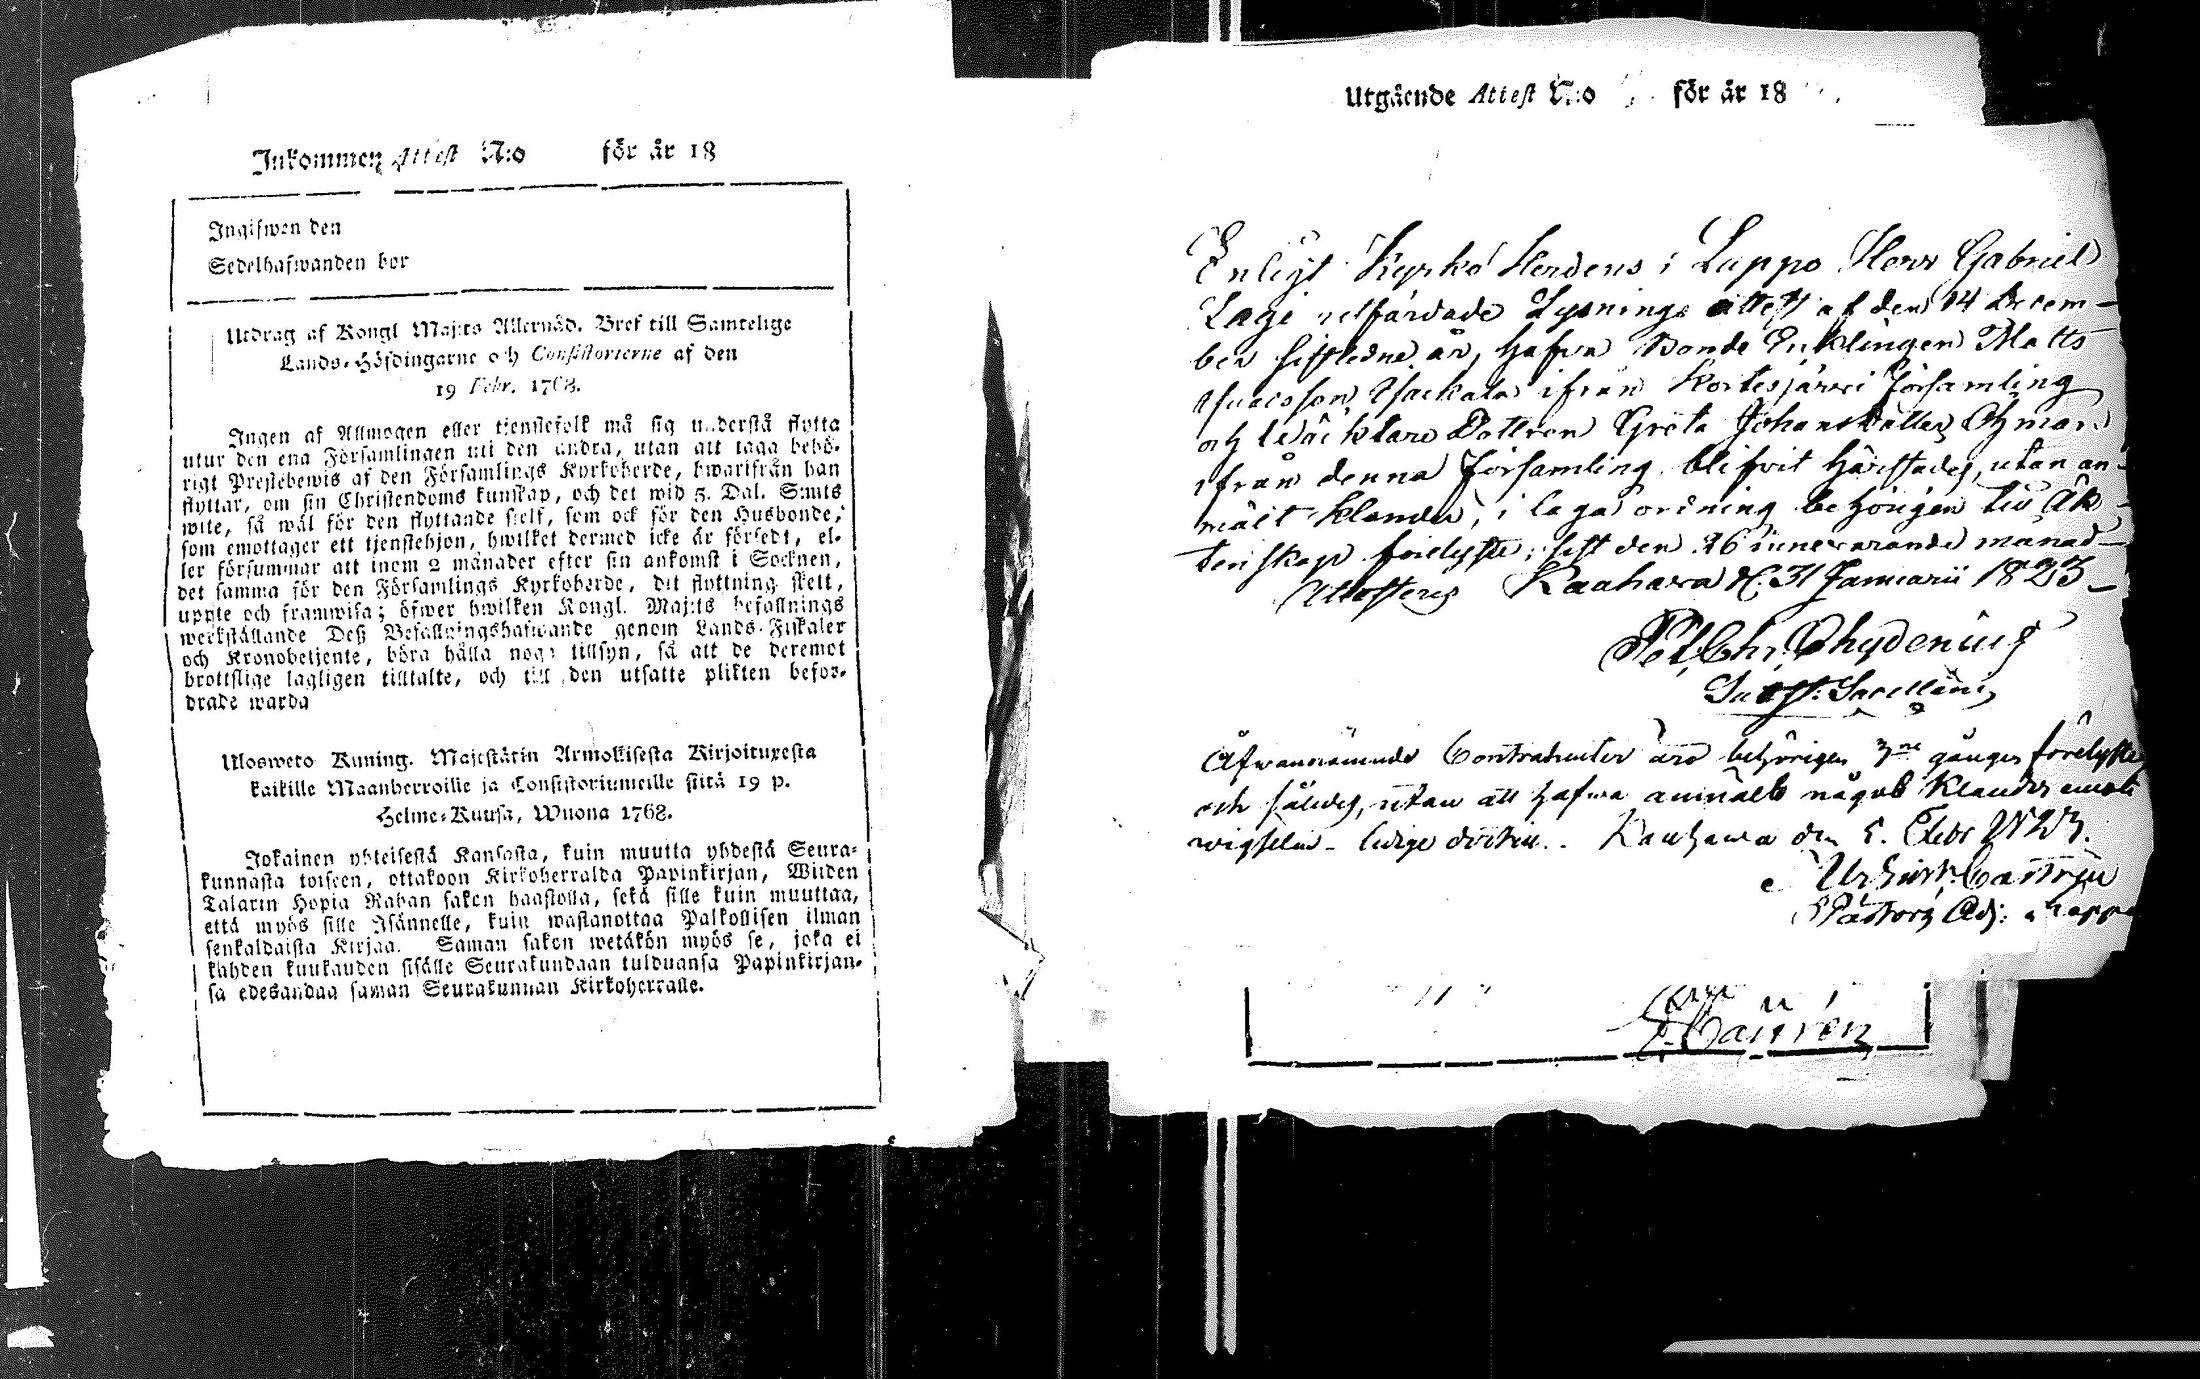 Inkommen Attest N:o för år 18
Ingifwen den
Sedelhafwanden bor
Utdrag af Kongl Maj:ts Allernåd. Bref till Samtelige
Lands-Höfdingarne och Consistorierne af den
19 Febr. 1768.
Ingen af Allmogen eller tjenstefolk må sig understå flytta
utur den ena Församlingen uti den andra, utan att taga behö-
rigt Prestebewis af den Församlings Kyrkoherde, hwarifrån han
flyttar, om sin Christendoms kunskap, och det wid 5. Dal. S:mts
wite, så wäl för den flyttande sielf, som ock för den Husbonde,
som emottager ett tjenstehjon, hwilket dermed icke är försedt, el-
ler försummar att inom 2 månader efter sin ankomst i Socknen,
det samma för den Församlings Kyrkoherde, dit flyttning skett,
uppte och framwisa; öfwer hwilken Kongl. Maj:ts befallnings
werkställande Deß Befallningshafwande genom Lands-Fiskaler
och Kronobetjente, böra hålla noga tillsyn, så att de deremot
brottslige lagligen tilltalte, och till den utsatte plikten befor-
drade warda
Ulosweto Kuning. Majestätin Armollisesta Kirjoituxesta
kaikille Maanherroille ja Consistoriumeille siitä 19 p.
Helme-Kuusa, Wuona 1768.
Jokainen yhteisestä Kansasta, kuin muutta yhdestä Seura-
kunnasta toiseen, ottakoon Kirkoherralda Papinkirjan, Wiiden
Talarin Hopia Rahan sakon haastolla, sekä sille kuin muuttaa,
että myös sille Isännelle, kuin wastanottaa Palkollisen ilman
senkaldaista Kirjaa. Saman sakon wetäkön myös se, joka ei
kahden kuukauden sisälle Seurakundaan tulduansa Papinkirjan-
sa edesandaa saman Seurakunnan Kirkoherralle.
Utgående Attest N:o för år 18
Enligt Kyrko Herdens i Lappo Herr Gabriel
Lagi utfärdade Lysnings attest af den 14 Decem-
ber sistledne år, hafwa Bonde Enklingen Matts
Isaacsson ifrån Kortesjärwi Församling
och Dottren Greta Johansdotter
ifrån denna Församling blifvit härstädes, utan an-
mält klander, i laga ordning behörigen til Äk-
tenskap förelyste; sist den 26 innewarande månad
Attesteras Kauhava d. 31 Januarii 1823
Pet. Chr. Chydenius
Sacellan
Åfwannämnde Contrahenter äro behörigen 3ne gånger förelyste
och således, utan att hafwa anmält något Klander emot
wigseln lediga Kauhawa den 5. Febr
Pastors Adj: